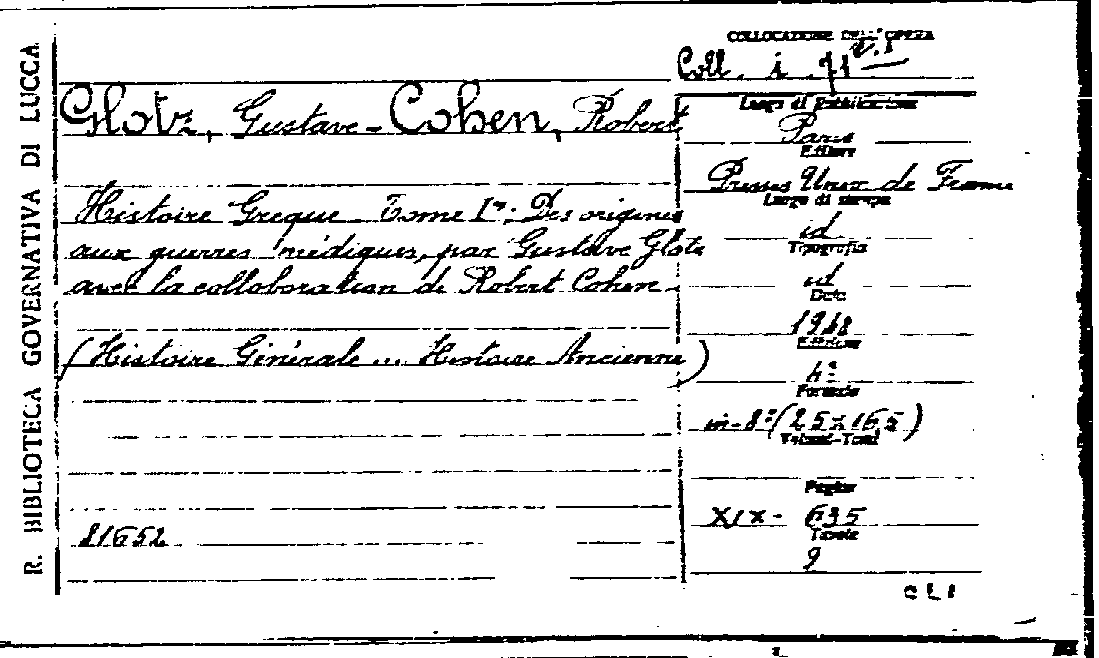 R. BIBLIOTECA GOVERNATIVA DI LUCCA
COLLOCAZIONE DELL'OPERA
Coll. i. 71 v.1
Glotz, Gustave - Cohen, Robert
Histoire Greque - Tome Ier: Des origines
aux guerres médiques, par Gustave Glotz
avec la collaboration de Robert Cohen -
(Histoire Générale ... Histoire Ancienne)
21652
Luogo di pubblicazione
Paris
Editore
Presses Univ. de France
Luogo di stampa
id
Tipografia
id
Data
1948
Edizione
4ª
Formato
in-8°(25x16,5)
Volumi-Tomi
Pagine
XIX - 635
Tavole
9
CLI